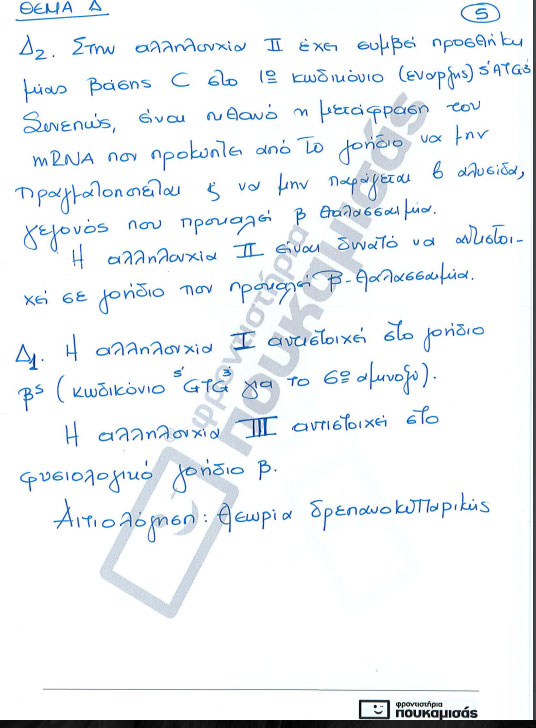 ΘΕΜΑ Δ
5
Δ2. Στην αλληλουχία II έχει συμβεί προσθήκη
μίας βάσης C στο 1ο κωδικόνιο (έναρξης) 5'ATG3'
Συνεπώς, είναι πιθανό η μετάφραση του
mRNA που προκύπτει από το γονίδιο να μην
πραγματοποιείται ξ να μην παράγεται β αλυσίδα,
γεγονός που προκαλεί β θαλασσαιμία.
Η αλληλουχία II είναι δυνατό να αντιστοι-
χεί σε γονίδιο που προκαλεί β-θαλασσαιμία.
Δ1. Η αλληλουχία I αντιστοιχεί στο γονίδιο
βs (κωδικόνιο 5'GTG3' για το 6ο αμινοξύ).
Η αλληλουχία III αντιστοιχεί στο
φυσιολογικό γονίδιο β.
Αιτιολόγηση: Θεωρία δρεπανοκυτταρικής
φροντιστήρια
πουκαμισάς
φροντιστήρια
πουκαμισάς